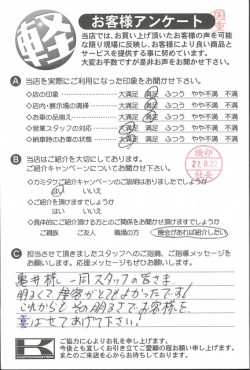 軽
お客様アンケート
当店では、お買い上げ頂いたお客様の声を可能
な限り現場に反映し、お客様により良い商品と
サービスを提供する事に努めています。
大変お手数ですが是非お声をお聞かせ下さい。
A 当店を実際にご利用になった印象をお聞かせ下さい。
◇店の印象 大満足 満足 ふつう やや不満 不満
◇店内・展示場の清掃 大満足 満足 ふつう やや不満 不満
◇お車の品揃え 大満足 満足 ふつう やや不満 不満
◇営業スタッフの対応 大満足 満足 ふつう やや不満 不満
◇納車時のお車の状態 大満足 満足 ふつう やや不満 不満
B 当店はご紹介を大切にしております。
ご紹介キャンペーンについてお聞かせ下さい。
◇カミタケご紹介キャンペーンのご説明はありましたでしょうか
はい いいえ
◇ご紹介を頂けますでしょうか
はい いいえ
◇具体的にご紹介頂ける方とのご関係をお聞かせ頂けますでしょうか
ご親族 ご友人 職場の方 機会があれば紹介したい
社長
C 担当させて頂きましたスタッフへのご指摘、ご指導メッセージを
お願いします。応援メッセージもぜひお願いします。
亀井様、一同スタッフの皆さま
明るくて接客がとてもよかったです!
これからも その明るさでお客様を、
喜ばせてあげて下さい!
ご協力に心よりお礼を申し上げます。
今後とも宜しくお引き立てご愛顧の程お願い申し上げます。
またのご来店を心からお待ちしております。